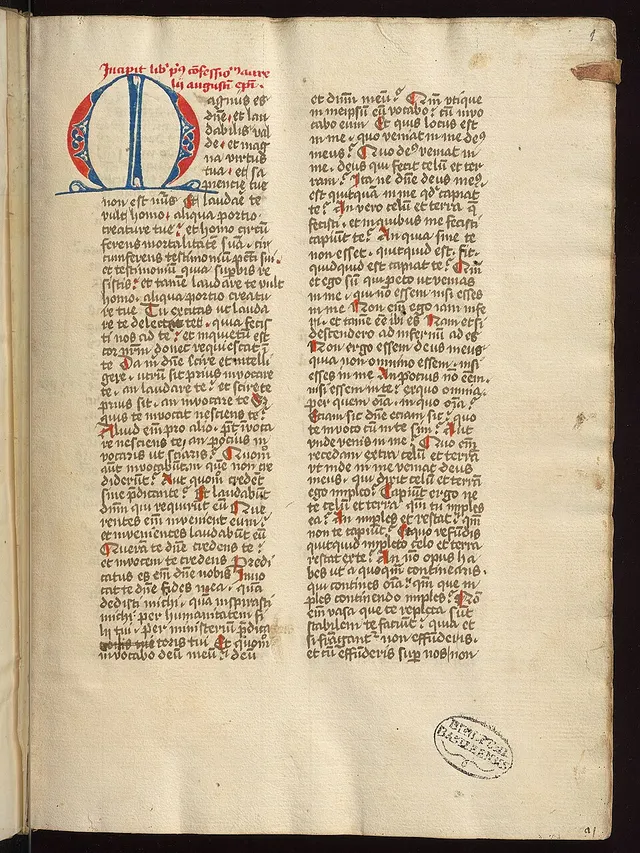 1
Incipit lib' p'm9 cōfessio'n aure
lii augustī epī.
Magnus es
dn̄e et lau
dabilis val
de et mag
na virtus
tua et sa
piencie tue
non est nūs. Et laudare te
vult homo. aliqua portio
creature tue et homo circū
ferens mortalitatē suā. cir
cumferens testimoniū pctī sui
et testimoniū quia supbis re
sistis et tamē laudare te vult
homo. aliqua portio creatu
re tue Tu excitas ut lauda
re te delectet. quia fecis
ti nos ad te et inquietū est
cor nr̄m donec requiescat ī
te Da m̄ dn̄e scire et intelli
gere. utrū sit prius invocare
te. an laudare te et scire te
prius sit. an invocare te Sz
quis te invocat nesciens te
Aliud em̄ pro alio pt̄ īvoca
re nesciens te an pocius in
vocaris ut sciaris Quom̄
aūt invocabūt in quē non cre
diderūt Aut quom̄ credēt
sine p̄dicante Et laudabūt
dn̄m qui requirūt eū Que
rentes em̄ invenient eum
et invenientes laudabūt eū
Querā te dn̄e credens te
et invocem te credens Predi
catus es em̄ dn̄e nobis Invo
cat te dn̄e fides mea. quā
dedisti michi. quā inspirasti
michi per humanitatem fi
lii tui. per ministeriū p̄dica
toris tui Et quom̄
invocabo deū meū deū
et dn̄m meū Qm̄ utique
in meipsum eū vocabo cū īvo
cabo eum Et quis locus est
in me. quo veniat in me de9
meus Quo de9 veniat in
me. deus qui fecit celū et ter
ram Ita ne dn̄e deus me9
est quitquā in me qd' capiat
te An vero celū et terra q̄
fecisti. et in quibus me fecisti
capiūt te An quia sine te
non esset. quitquid est. fit.
quidquid est capiat te Qm̄
et ego sū quid peto ut venias
in me. qui nō essem nisi esses
in me Non em̄ ego iam infe
ri. et tamē eē ibi es Nam etsi
descendero ad infernū ad es
Non ergo essem deus meus
qua non omnino essem. nisi
esses in me An pocius nō eem̄
nisi essem in te ex quo omnia
per quem oīa. in quo oīa
Eciam sic dn̄e eciam sic quo
te invoco cū in te sim Aut
unde venis in me Quo em̄
recedam extra celū et terrā
ut inde in me veniat deus
meus. qui dixit celū et terrā
ego impleo Capiūt ergo ne
te celū et terra. qm̄ tu imples
ea An imples et restat qm̄
non te capiūt Et quo refūdis
quitquid impleto celo et terra
restat ex te An nō opus ha
bes ut a quoquā continearis
qui contines oīa qm̄ que im
ples continendo imples Nō
em̄ vasa que te repleta sūt
stabilem te faciūt quia et
si frāgantur non effūderis.
et cū effūderis sup nos non
BIBLIOTH
BASILEENSIS
a1